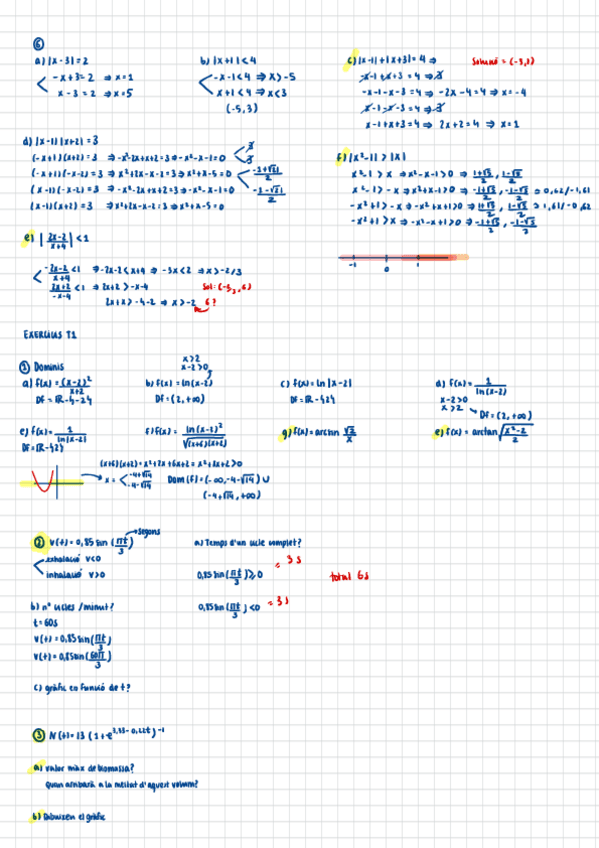 ⑥
a) |x-3| = 2
-x+3=2 ⇒ x=1
x-3=2 ⇒ x=5
b) |x+1| < 4
-x-1<4 ⇒ x>-5
x+1<4 ⇒ x<3
(-5,3)
c) |x-1|+|x+3| = 4 ⇒
Solució = (-3,1)
-x-1+x+3=4 ⇒ ∄
-x-1-x-3=4 ⇒ -2x-4=4 ⇒ x=-4
x-1-x-3=4 ⇒ ∄
x-1+x+3=4 ⇒ 2x+2=4 ⇒ x=1
d) |x-1||x+2| = 3
(-x+1)(x+2)=3 ⇒ -x²-2x+x+2=3 ⇒ -x²-x-1=0 ∄ ∄
(-x+1)(-x-2)=3 ⇒ x²+2x-x-2=3 ⇒ x²+x-5=0 (-1+√21)/2
(x-1)(-x-2)=3 ⇒ -x²-2x+x+2=3 ⇒ -x²-x-1=0 (-1-√21)/2
(x-1)(x+2)=3 ⇒ x²+2x-x-2=3 ⇒ x²+x-5=0
f) |x²-1| > |x|
x²-1>x ⇒ x²-x-1>0 ⇒ (1+√5)/2, (1-√5)/2
x²-1>-x ⇒ x²+x-1>0 ⇒ (-1+√5)/2, (-1-√5)/2 ⇒ 0,62/-1,61
-x²+1>-x ⇒ -x²+x+1>0 ⇒ (1+√5)/2, (1-√5)/2 ⇒ 1,61/-0,62
-x²+1>x ⇒ -x²-x+1>0 ⇒ (-1+√5)/2, (-1-√5)/2
-1 0 1
e) |(2x-2)/(x+4)| < 1
-(2x-2)/(x+4) <1 ⇒ -2x-2<x+4 ⇒ -3x<2 ⇒ x>-2/3
(2x+2)/(-x-4) <1 ⇒ 2x+2>-x-4
Sol: (-2/3, 6)
2x+x>-4-2 ⇒ x>-2
6?
EXERCICIS T1
① Dominis
a) f(x)= (x-2)²/(x+2)
Df = ℝ-{-2}
x>2
x-2>0
b) f(x)= ln(x-2)
Df = (2,+∞)
c) f(x)= ln|x-2|
Df = ℝ-{2}
d) f(x)= 1/ln(x-2)
x-2>0
x>2
Df = (2,+∞)
e) f(x)= 1/ln|x-2|
Df=ℝ-{2}
f) f(x)= ln(x-2)²/√((x+6)(x+2))
g) f(x)= arcsin √2/x
e) f(x)= arctan √(x²-2)/2
(x+6)(x+2)= x²+2x+6x+2 = x²+8x+2>0
x= -4+√14
-4-√14
Dom(f)=(-∞,-4-√14)∪
(-4+√14,+∞)
② v(t)=0,85 sin(πt/3)
→segons
exhalació v<0
inhalació v>0
a) Temps d'un cicle complet?
0,85 sin(πt/3)≥0 = 3s
0,85 sin(πt/3)<0 = 3s
total 6s
b) nº cicles/minut?
t=60s
v(t)=0,85 sin(πt/3)
v(t)=0,85sin(60π/3)
c) gràfic en funció de t?
③ N(t)=13 (1+e^(3,33-0,22t))^-1
a) valor màx de biomassa?
quan arribarà a la meitat d'aquest volum?
b) Dibuixen el gràfic